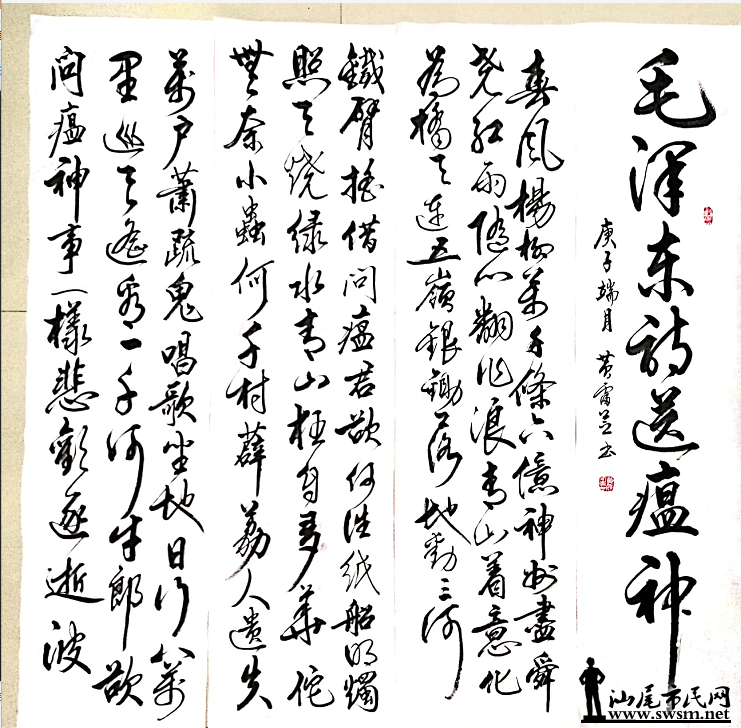 毛泽东诗送瘟神
庚子端月
春风楊柳萬千條六億神州盡舜
堯红雨随心翻作浪青山着意化
為橋天连五嶺銀鋤落地動三河
鐵臂摇借问瘟君欲何往纸船明燭
照天烧绿水青山枉自多華佗
無奈小蟲何千村薜荔人遗失
萬户蕭疏鬼唱歌坐地日行八萬
里巡天遥看一千河牛郎欲
问瘟神事一樣悲歡逐逝波
汕尾市民网
www.swsm.net